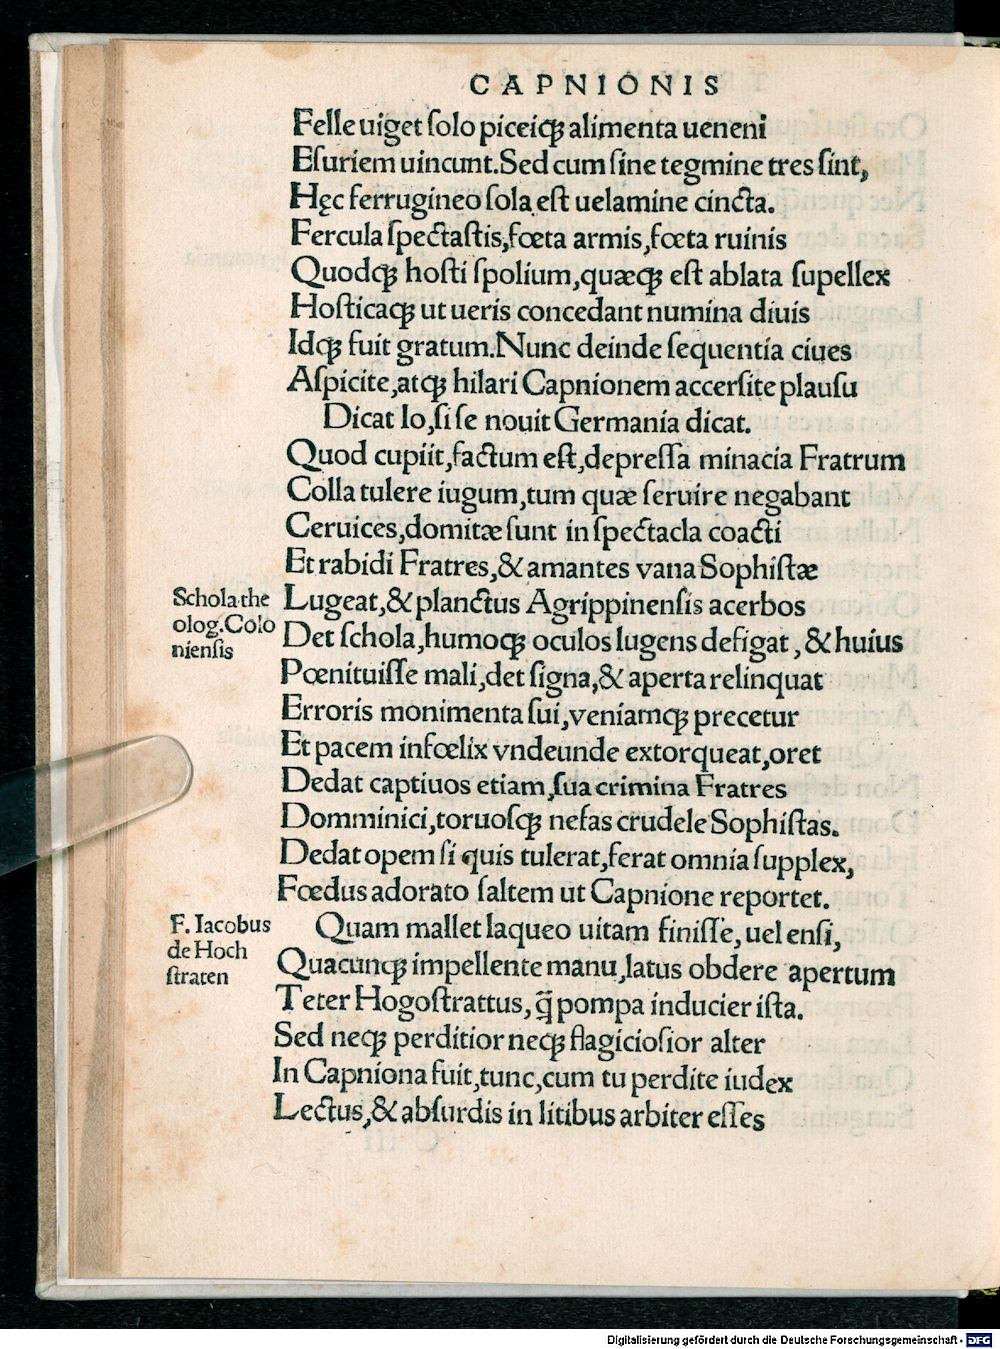 CAPNIONIS
Felle uiget ſolo piceiqꝫ alimenta ueneni
Eſuriem uincunt. Sed cum ſine tegmine tres ſint,
Hęc ferrugineo ſola eſt uelamine cincta.
Fercula ſpectaſtis, fœta armis, fœta ruinis
Quodqꝫ hoſti ſpolium, quæqꝫ eſt ablata ſupellex
Hoſticaqꝫ ut ueris concedant numina diuis
Idqꝫ fuit gratum. Nunc deinde ſequentia ciues
Aſpicite, atqꝫ hilari Capnionem accerſite plauſu
Dicat Io, ſi ſe nouit Germania dicat.
Quod cupiit, factum eſt, depreſſa minacia Fratrum
Colla tulere iugum, tum quæ ſeruire negabant
Ceruices, domitæ ſunt in ſpectacla coacti
Et rabidi Fratres, & amantes vana Sophiſtæ
Schola the
olog. Colo
nienſis
Lugeat, & planctus Agrippinenſis acerbos
Det ſchola, humoqꝫ oculos lugens defigat, & huius
Pœnituiſſe mali, det ſigna, & aperta relinquat
Erroris monimenta ſui, veniamqꝫ precetur
Et pacem infœlix vndeunde extorqueat, oret
Dedat captiuos etiam, ſua crimina Fratres
Domminici, toruoſqꝫ nefas crudele Sophiſtas.
Dedat opem ſi quis tulerat, ferat omnia ſupplex,
Fœdus adorato ſaltem ut Capnione reportet.
F. Iacobus
de Hoch
ſtraten
Quam mallet laqueo uitam finiſſe, uel enſi,
Quacunqꝫ impellente manu, latus obdere apertum
Teter Hogoſtrattus, q̃ pompa inducier iſta.
Sed neqꝫ perditior neqꝫ flagicioſior alter
In Capniona fuit, tunc, cum tu perdite iudex
Lectus, & abſurdis in litibus arbiter eſſes
Digitalisierung gefördert durch die Deutsche Forschungsgemeinschaft - DFG